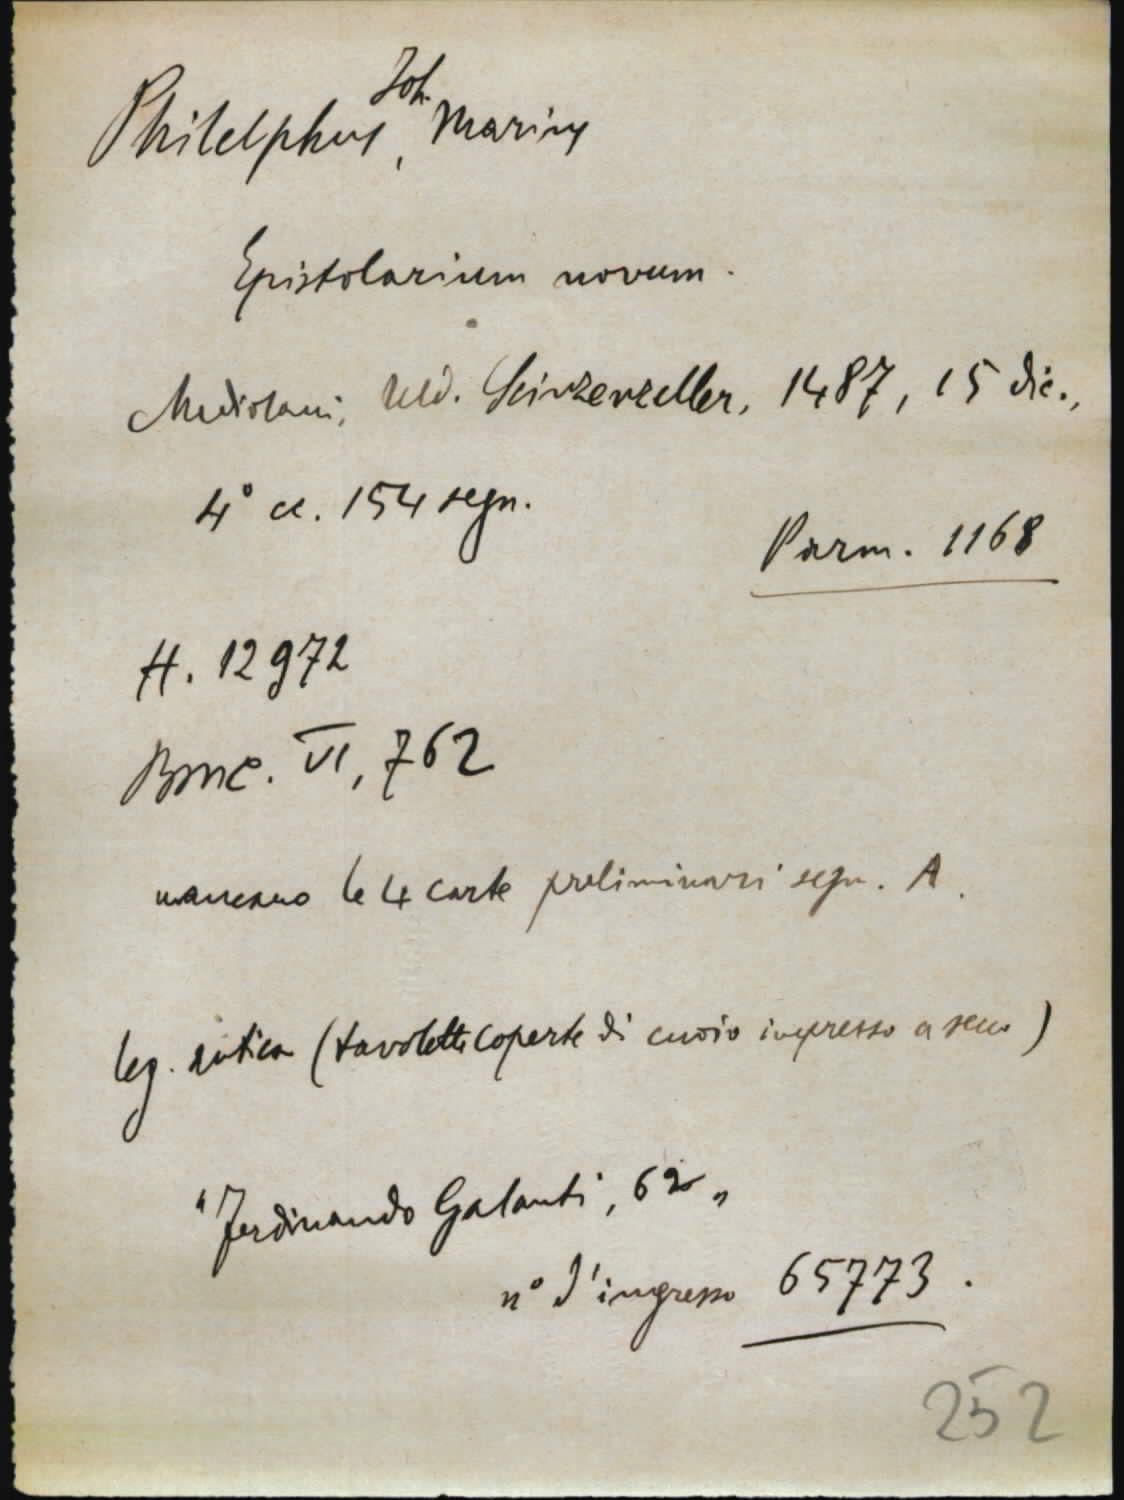 Philelphus, Joh. Marius
Epistolarium novum.
Mediolani, Uld. Scinzenzeller, 1487, 15 dic.,
4° cc. 154 segn.
Parm. 1168
H. 12972
BMC. VI, 762
mancano le 4 carte preliminari segn. A.
leg. antica (tavolette coperte di cuoio impresso a secco)
"Ferdinando Galanti, 62"
n° d'ingresso 65773.
252